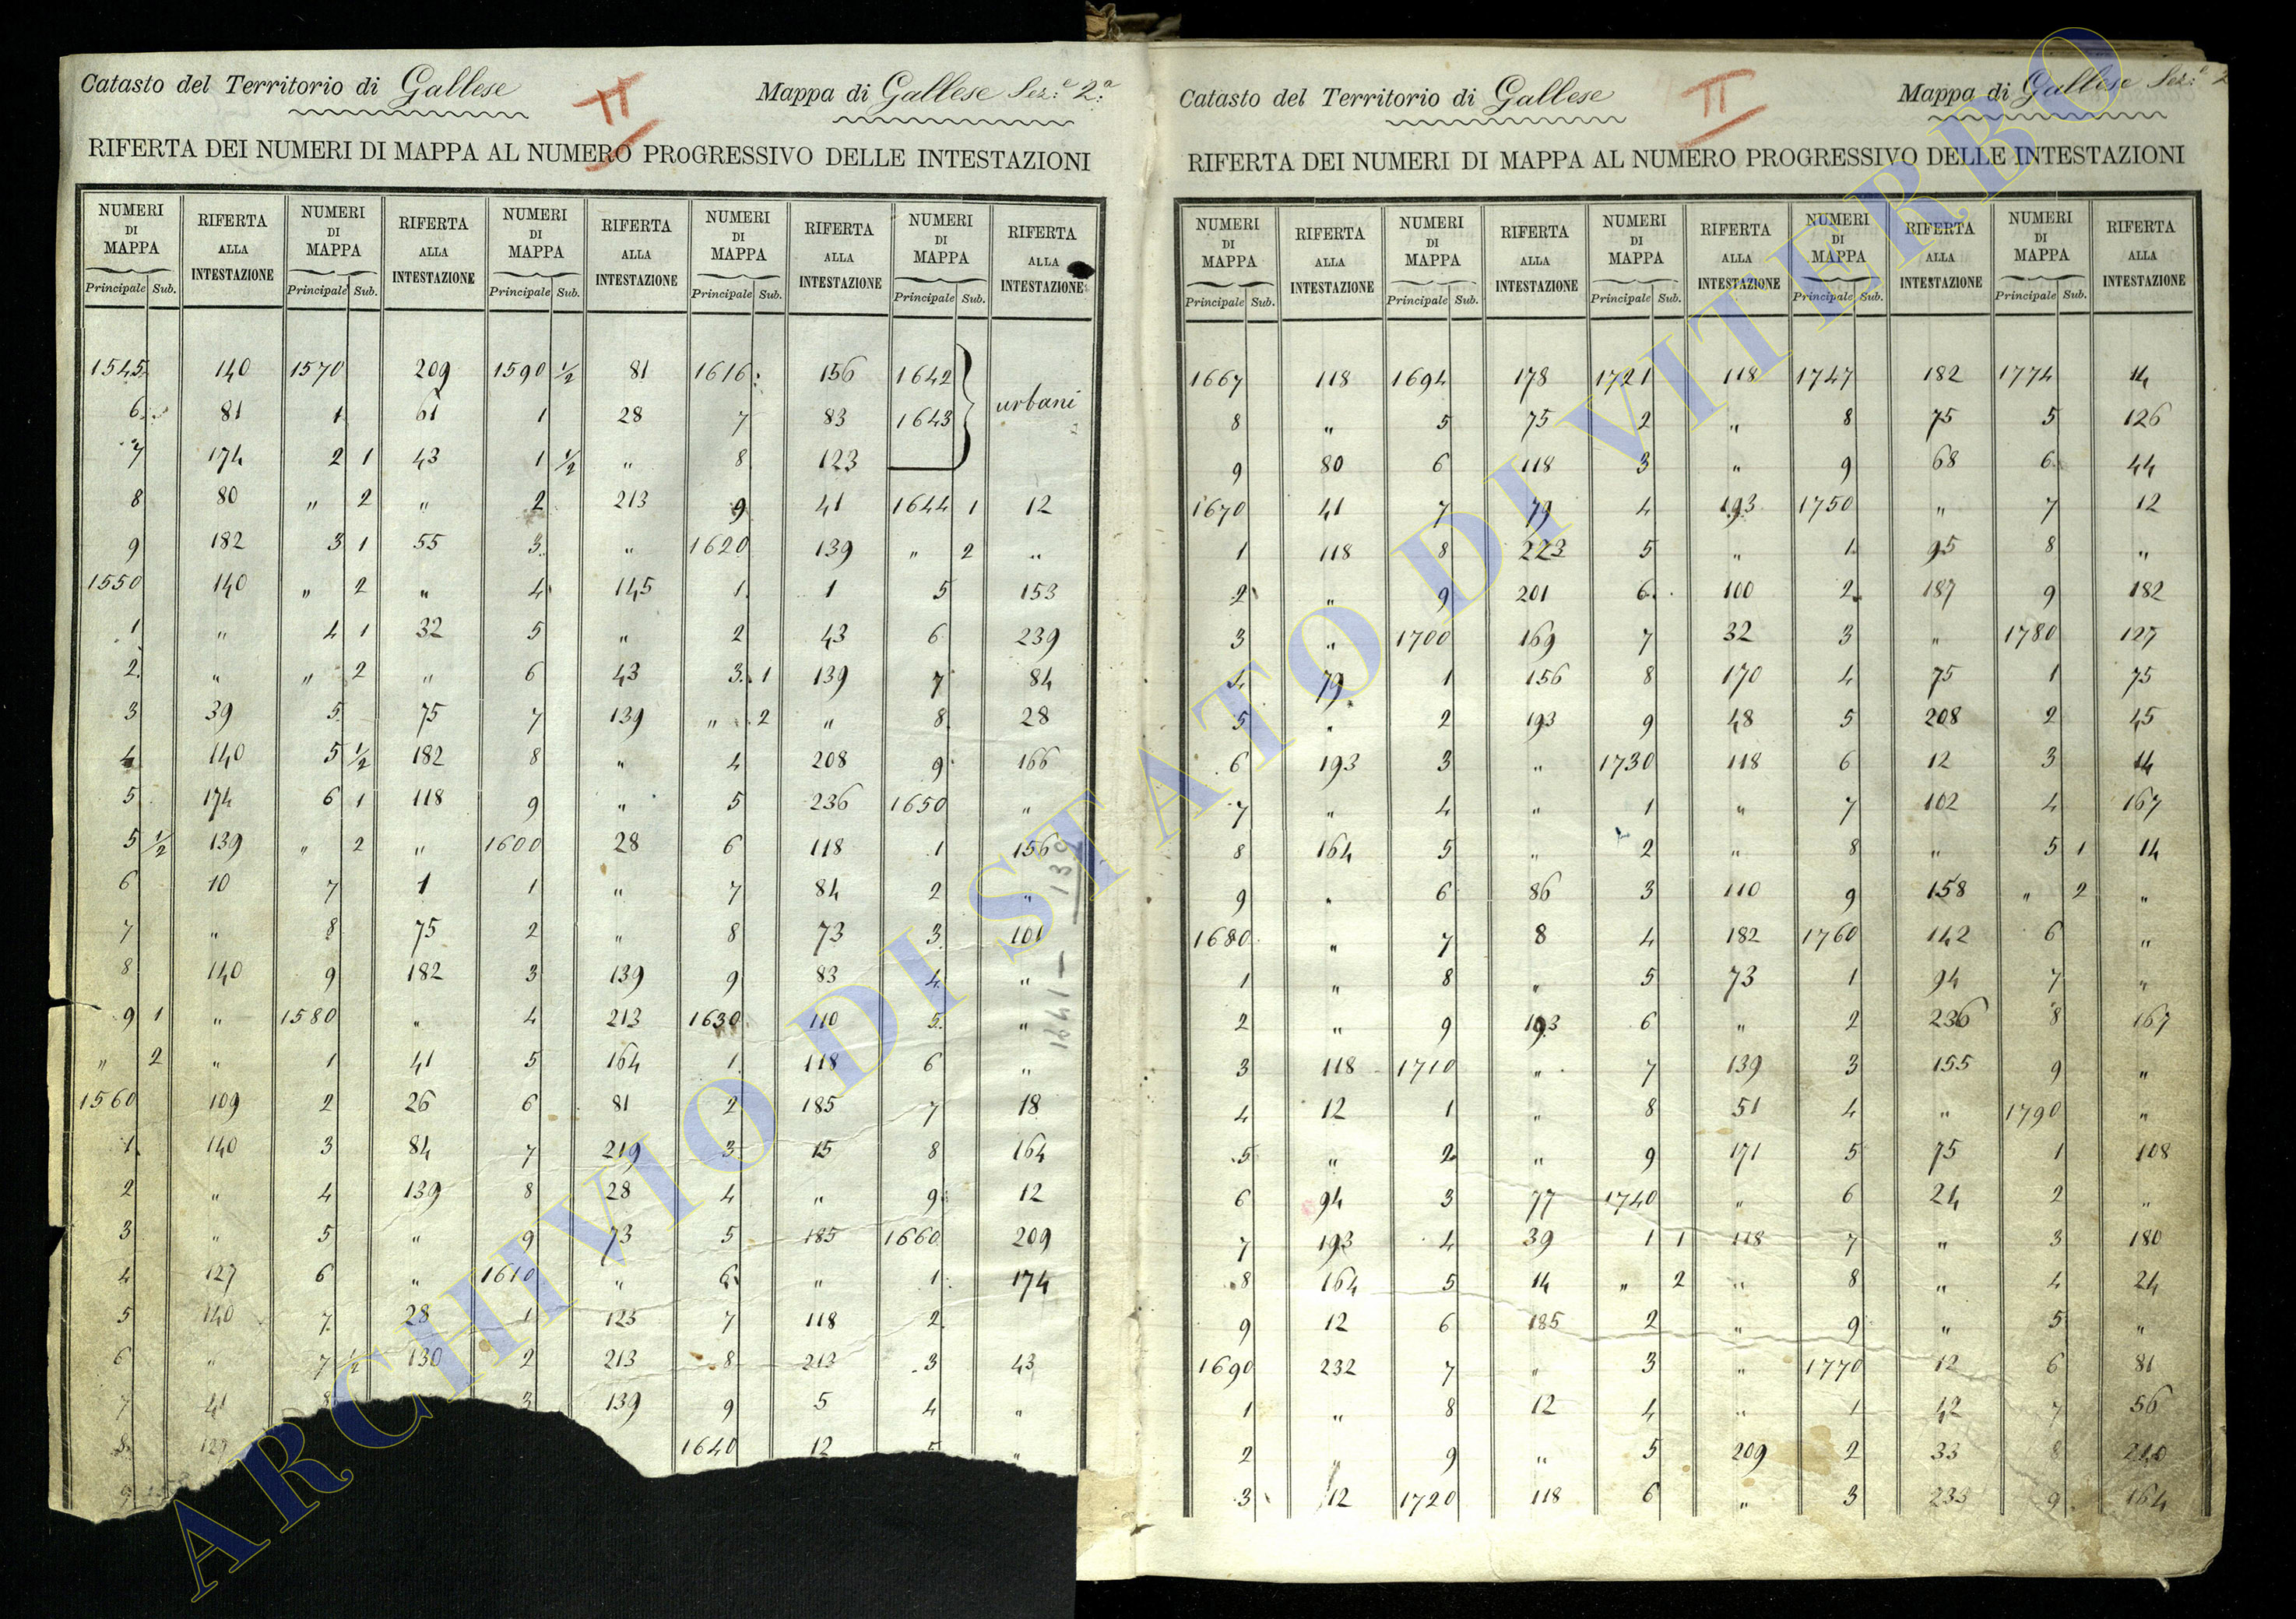 Catasto del Territorio di Gallese II Mappa di Gallese Sez.e 2.a
RIFERTA DEI NUMERI DI MAPPA AL NUMERO PROGRESSIVO DELLE INTESTAZIONI
NUMERI DI MAPPA RIFERTA ALLA INTESTAZIONE NUMERI DI MAPPA RIFERTA ALLA INTESTAZIONE NUMERI DI MAPPA RIFERTA ALLA INTESTAZIONE NUMERI DI MAPPA RIFERTA ALLA INTESTAZIONE NUMERI DI MAPPA RIFERTA ALLA INTESTAZIONE
Principale Sub. Principale Sub. Principale Sub. Principale Sub. Principale Sub.
1545 140 1570 209 1590 1/2 81 1616 156 1642 urbani
6 81 1 61 1 28 7 83 1643
7 174 2 1 43 1 1/2 " 8 123
8 80 " 2 " 2 213 9 41 1644 1 12
9 182 3 1 55 3 " 1620 139 " 2 "
1550 140 " 2 " 4 145 1 1 5 153
1 " 4 1 32 5 " 2 43 6 239
2 " " 2 " 6 43 3 1 139 7 84
3 39 5 75 7 139 " 2 " 8 28
4 140 5 1/2 182 8 " 4 208 9 166
5 174 6 1 118 9 " 5 236 1650 "
5 1/2 139 " 2 " 1600 28 6 118 1 156
6 10 7 1 1 " 7 84 2 "
7 " 8 75 2 " 8 73 3 101
8 140 9 182 3 139 9 83 4 "
9 1 " 1580 " 4 213 1630 110 5 "
" 2 " 1 41 5 164 1 118 6 "
1560 109 2 26 6 81 2 185 7 18
1 140 3 84 7 219 3 15 8 164
2 " 4 139 8 28 4 " 9 12
3 " 5 " 9 73 5 185 1660 209
4 127 6 " 1610 " 6 " 1 174
5 140 7 28 1 123 7 118 2
6 " 7 1/2 130 2 213 8 213 3 43
7 41 8 3 139 9 5 4 "
8 127 1640 12 5 "
9
Catasto del Territorio di Gallese II Mappa di Gallese Sez.e 2
RIFERTA DEI NUMERI DI MAPPA AL NUMERO PROGRESSIVO DELLE INTESTAZIONI
NUMERI DI MAPPA RIFERTA ALLA INTESTAZIONE NUMERI DI MAPPA RIFERTA ALLA INTESTAZIONE NUMERI DI MAPPA RIFERTA ALLA INTESTAZIONE NUMERI DI MAPPA RIFERTA ALLA INTESTAZIONE NUMERI DI MAPPA RIFERTA ALLA INTESTAZIONE
Principale Sub. Principale Sub. Principale Sub. Principale Sub. Principale Sub.
1667 118 1694 178 1721 118 1747 182 1774 14
8 " 5 75 2 " 8 75 5 126
9 80 6 118 3 " 9 68 6 44
1670 41 7 79 4 193 1750 " 7 12
1 118 8 223 5 " 1 95 8 "
2 " 9 201 6 100 2 187 9 182
3 " 1700 169 7 32 3 " 1780 127
4 79 1 156 8 170 4 75 1 75
5 " 2 193 9 48 5 208 2 45
6 193 3 " 1730 118 6 12 3 14
7 " 4 " 1 " 7 102 4 167
8 164 5 " 2 " 8 " 5 1 14
9 " 6 86 3 110 9 158 " 2 "
1680 " 7 8 4 182 1760 142 6 "
1 " 8 " 5 73 1 94 7 "
2 " 9 193 6 " 2 236 8 167
3 118 1710 " 7 139 3 155 9 "
4 12 1 " 8 51 4 " 1790 "
5 " 2 " 9 171 5 75 1 108
6 94 3 77 1740 " 6 24 2 "
7 193 4 39 1 1 118 7 " 3 180
8 164 5 14 " 2 " 8 " 4 24
9 12 6 185 2 " 9 " 5 "
1690 232 7 " 3 " 1770 12 6 81
1 " 8 12 4 " 1 42 7 56
2 " 9 " 5 209 2 33 8
3 12 1720 118 6 " 3 233 9 164
ARCHIVIO DI STATO DI VITERBO